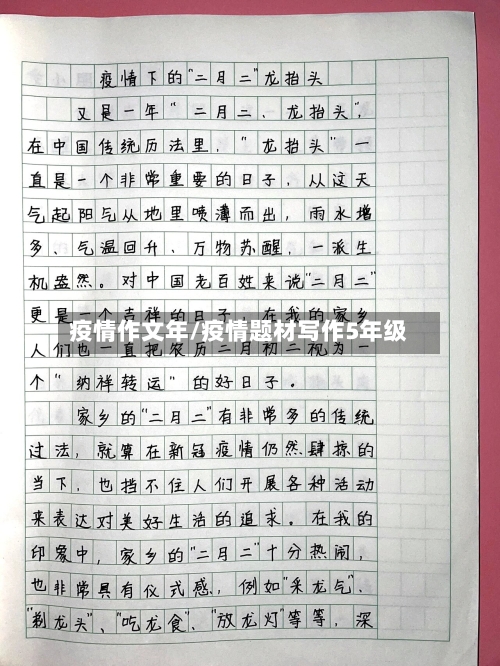 疫情下的"二月二"龙抬头
又是一年"二月二、龙抬头",
在中国传统历法里,"龙抬头"一
直是一个非常重要的日子,从这天
气起阳气从地里喷薄而出,雨水增
多、气温回升、万物苏醒,一派生
机盎然。对中国老百姓来说"二月二"
更是一个吉祥的日子,在我的家乡
疫情作文年/疫情题材写作5年级
人们也一直把农历二月初二视为一
个"纳祥转运"的好日子。
家乡的"二月二"有非常多的传统
过法,就算在新冠疫情仍然肆掠的
当下,也挡不住人们开展各种活动
来表达对美好生活的追求。在我的
印象中,家乡的"二月二"十分热闹,
也非常具有仪式感,例如"采龙气"、
"剃龙头"、"吃龙食"、"放龙灯"等等,深